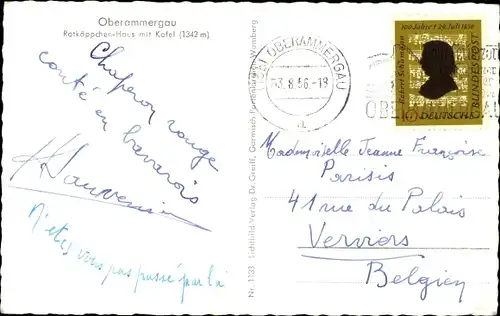 Oberammergau
Rotkäppchen-Haus mit Kofel (1342 m)
Chaperon rouge
conté en bavarois
N'êtes vous pas passé par là
Nr. 1133 Lichtbild Verlag Dr. Greiff, Garmisch-Partenkirchen-Wamberg
OBERAMMERGAU
3.8.56.-18
a
OBE
100 Jahre † 29. Juli 1956
Robert Schumann
DEUTSCHE
BUNDESPOST
Mademoiselle Jeanne Françoise
Parisis
41 rue du Palais
Verviers
Belgien